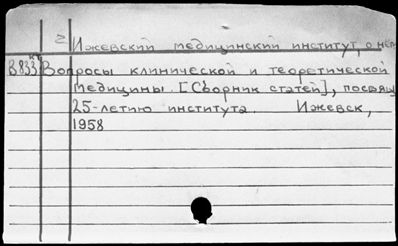 Ижевский медицинский институт, о нём
В833 Вопросы клинической и теоретической
медицины. [Сборник статей], посвящ.
25-летию института. Ижевск,
1958